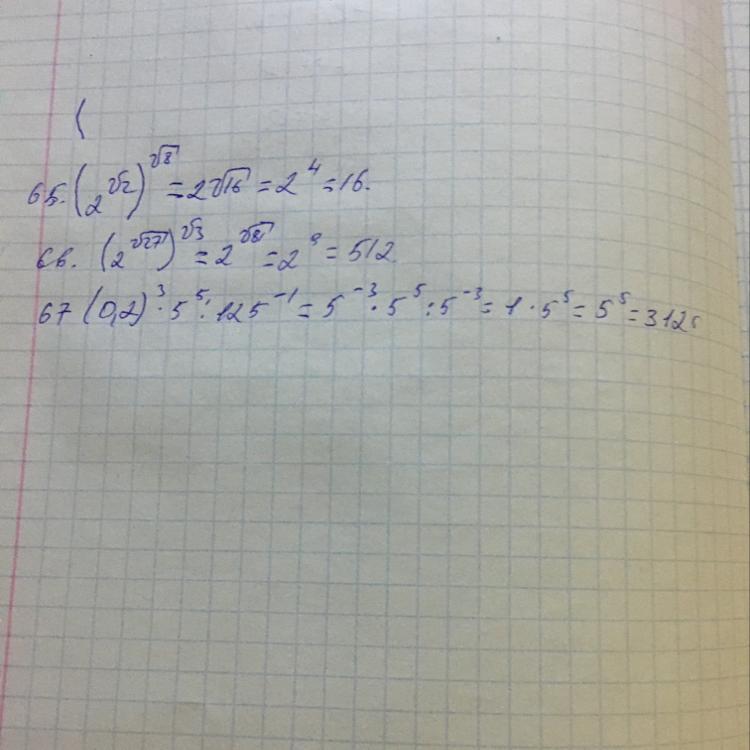 (
65. (2^√2)^√8 = 2√16 = 2^4 = 16.
66. (2^√27)^√3 = 2^√81 = 2^9 = 512
67 (0,2)^3 · 5^5 : 125^-1 = 5^-3 · 5^5 : 5^-3 = 1 · 5^5 = 5^5 = 3125